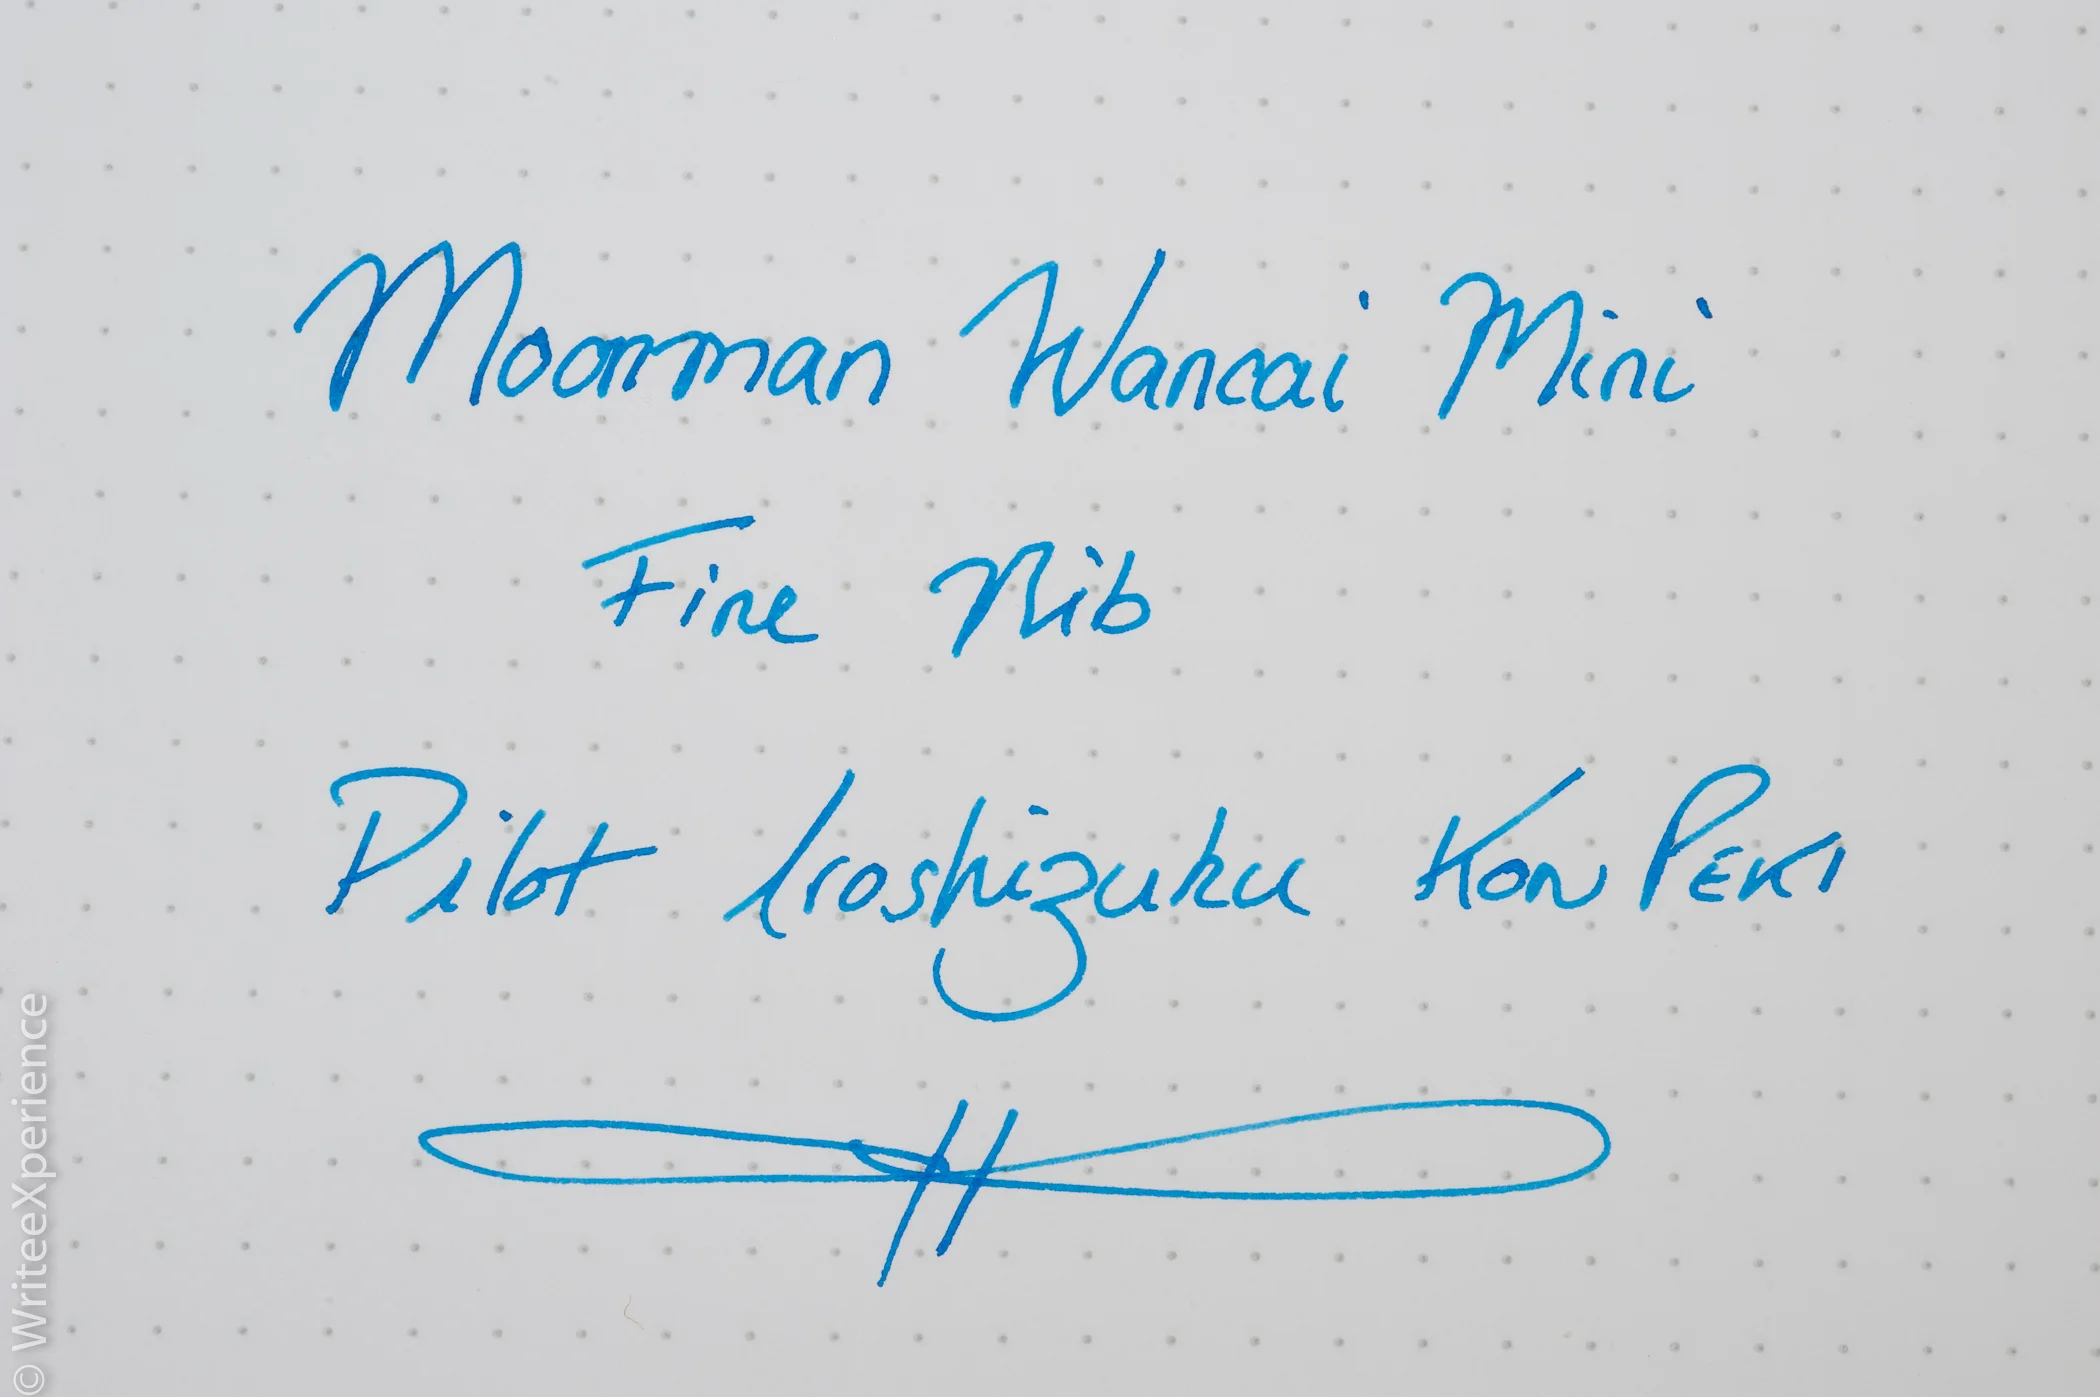 Moonman Wancai Mini
Fine Nib
Pilot Iroshizuku Kon Peki
© WriteeXperience